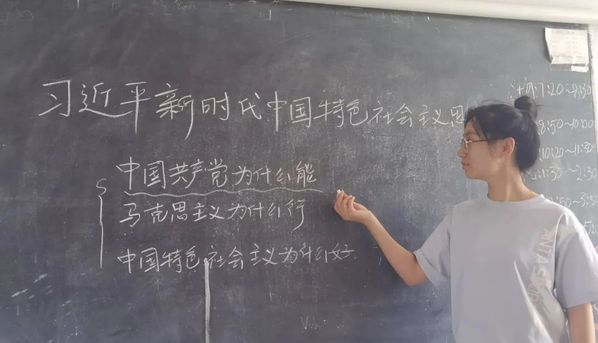 习近平新时代中国特色社会主义思
中国共产党为什么能
马克思主义为什么行
中国特色社会主义为什么好
7:20~
8:50~10:20
10:20~11:30